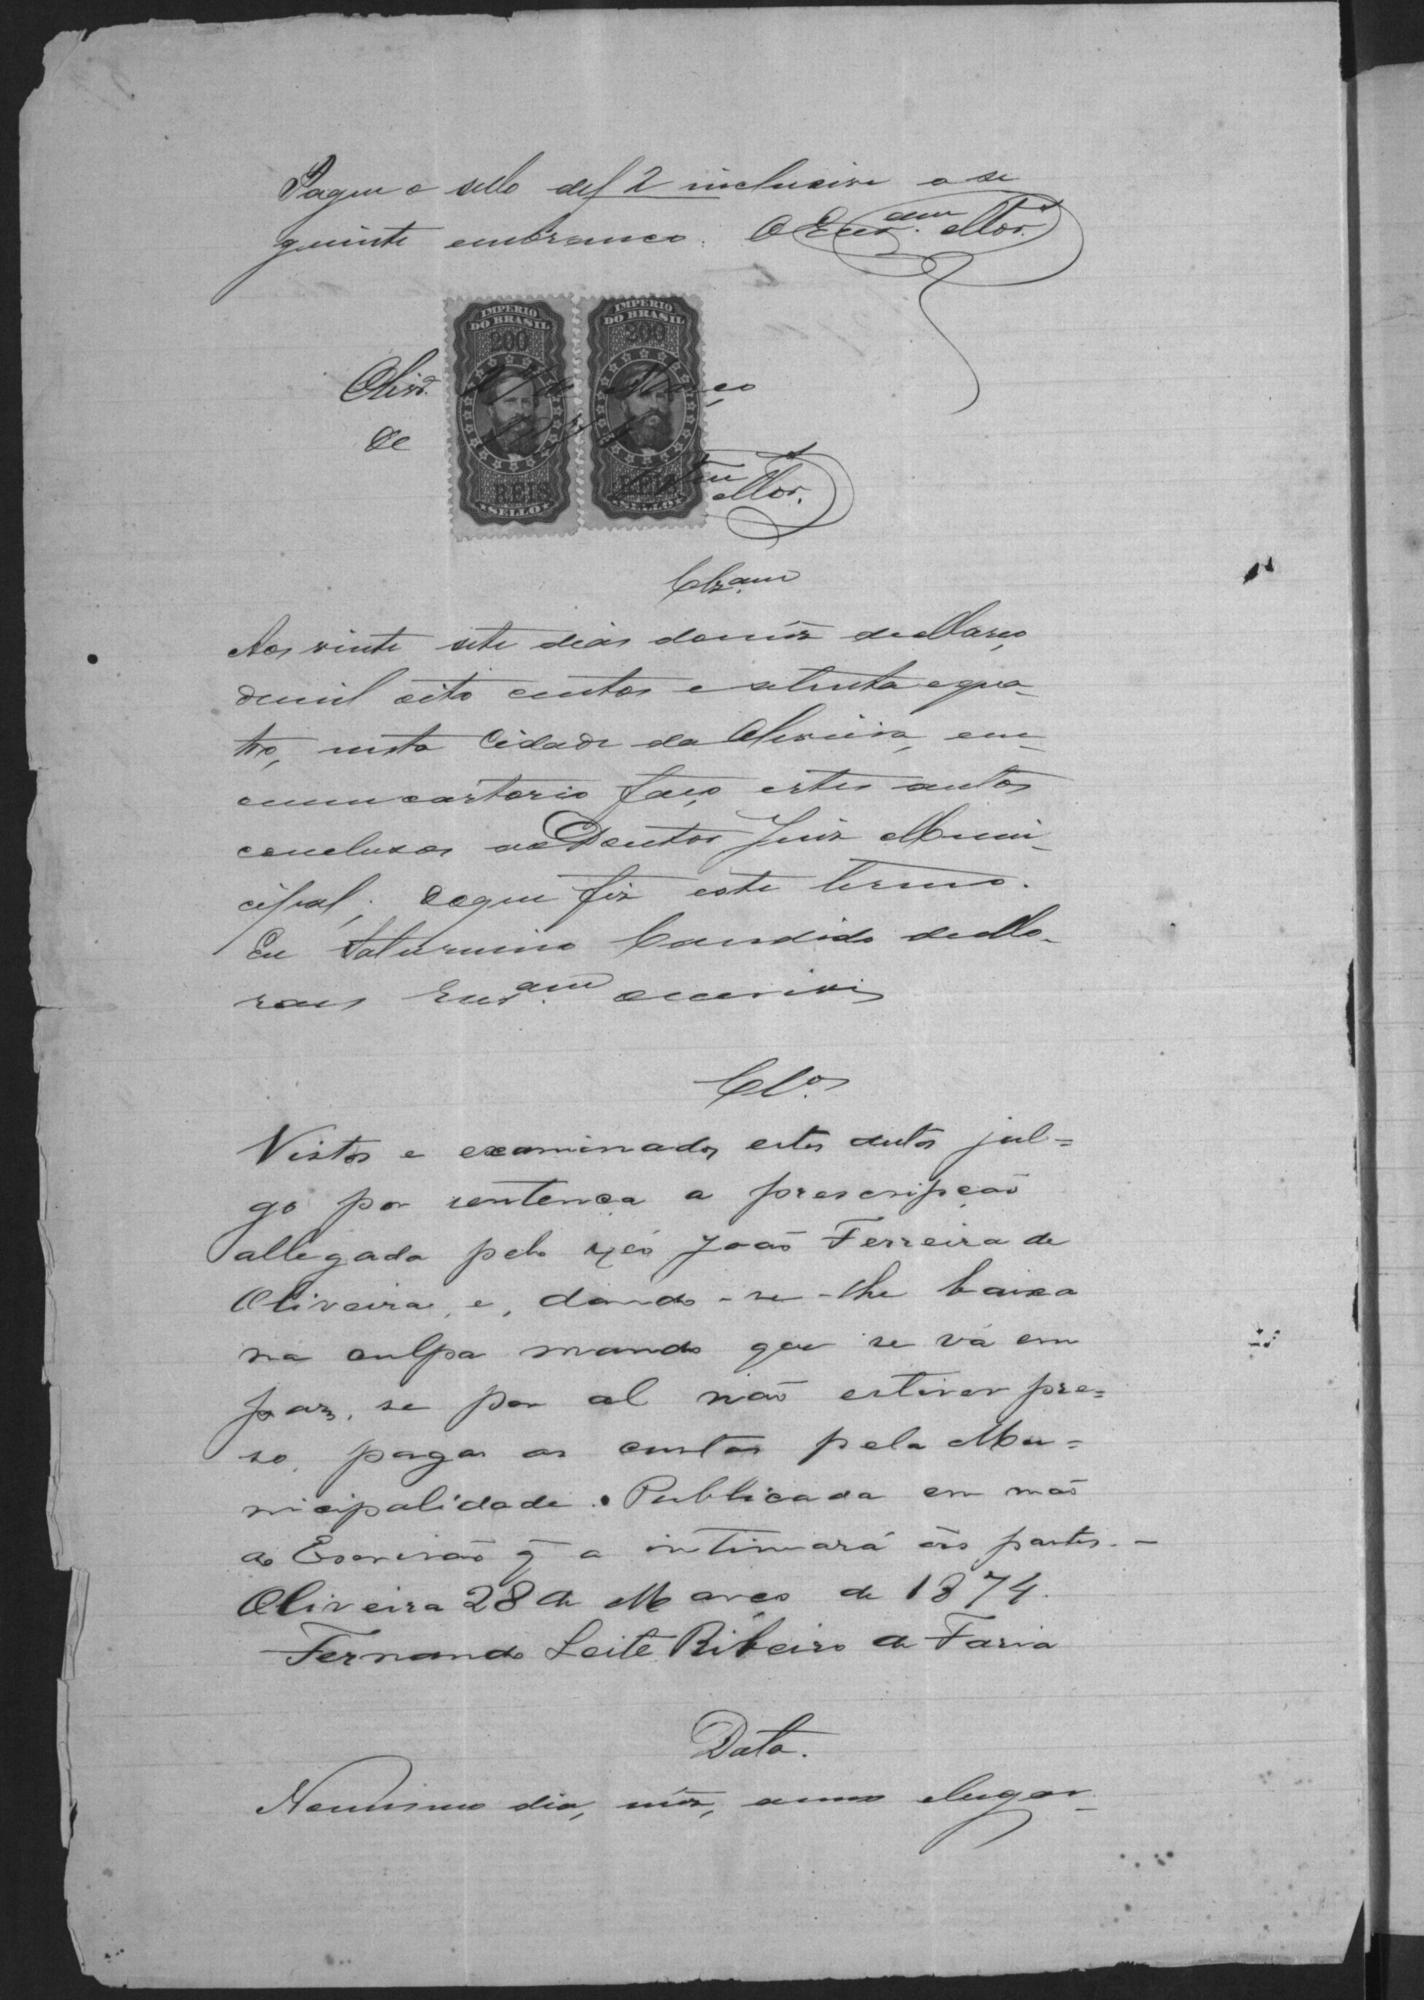 Pague o sello de f 2 inclusive o se
guinte embranco. O Escr.am Mor.s
IMPERIO DO BRASIL
200
REIS
SELLO
IMPERIO DO BRASIL
200
REIS
SELLO
Olivr.a 27 de Março
de
Mor.s
Clz.am
Aos vinte sete dias do mêz de Março,
de mil oito centos e setenta e qua-
tro, nesta Cidade da Oliveira, em
emmeu cartorio faço estes autos
conclusos ao Doutor Juiz Muni-
cipal; do que fiz este termo.
Eu Saturnino Candido de Mo-
raes Escr.am o escrivi
Cl.os
Vistos e examinados estes autos jul=
go por sentença a prescripção
allegada pelo réo João Ferreira de
Oliveira, e, dando-se-lhe baixa
na culpa mando que se vá em
paz, se por al não estiver pre=
so, pagas as custas pela Mu=
nicipalidade. Publicada em mão
do Escrivão q̃ a intimará ás partes. -
Oliveira 28 de Março de 1874.
Fernando Leite Ribeiro de Faria
Data.
Nomesmo dia, mêz, anno elugar